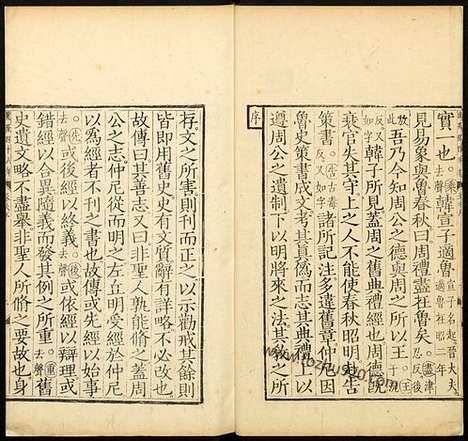 實一也○乘去聲韓宣子適魯宣子名起晉大夫適魯在昭二年
見易象與魯春秋曰周禮盡在魯矣盡津忍反後
放此吾乃今知周公之德與周之所以王○王
反又如字韓子所見蓋周之舊典禮經也周德旣
衰官失其守上之人不能使春秋昭明赴告
策書告古毒反又如字諸所記注多違舊章仲尼因
魯史策書成文考其眞僞而志其典禮上以
遵周公之遺制下以明將來之法其敎之所
序
存文之所害則刊而正之以示勸戒其餘則
皆即用舊史史有文質辭有詳略不必改也
故傳曰其善志又曰非聖人孰能脩之蓋周
公之志仲尼從而明之左丘明受經於仲尼
以為經者不刊之書也故傳或先經以始事
○先去聲或後經以終義○後去聲或依經以辯理或
錯經以合異隨義而發其例之所重○重去聲舊
史遺文略不盡舉非聖人所脩之要故也身